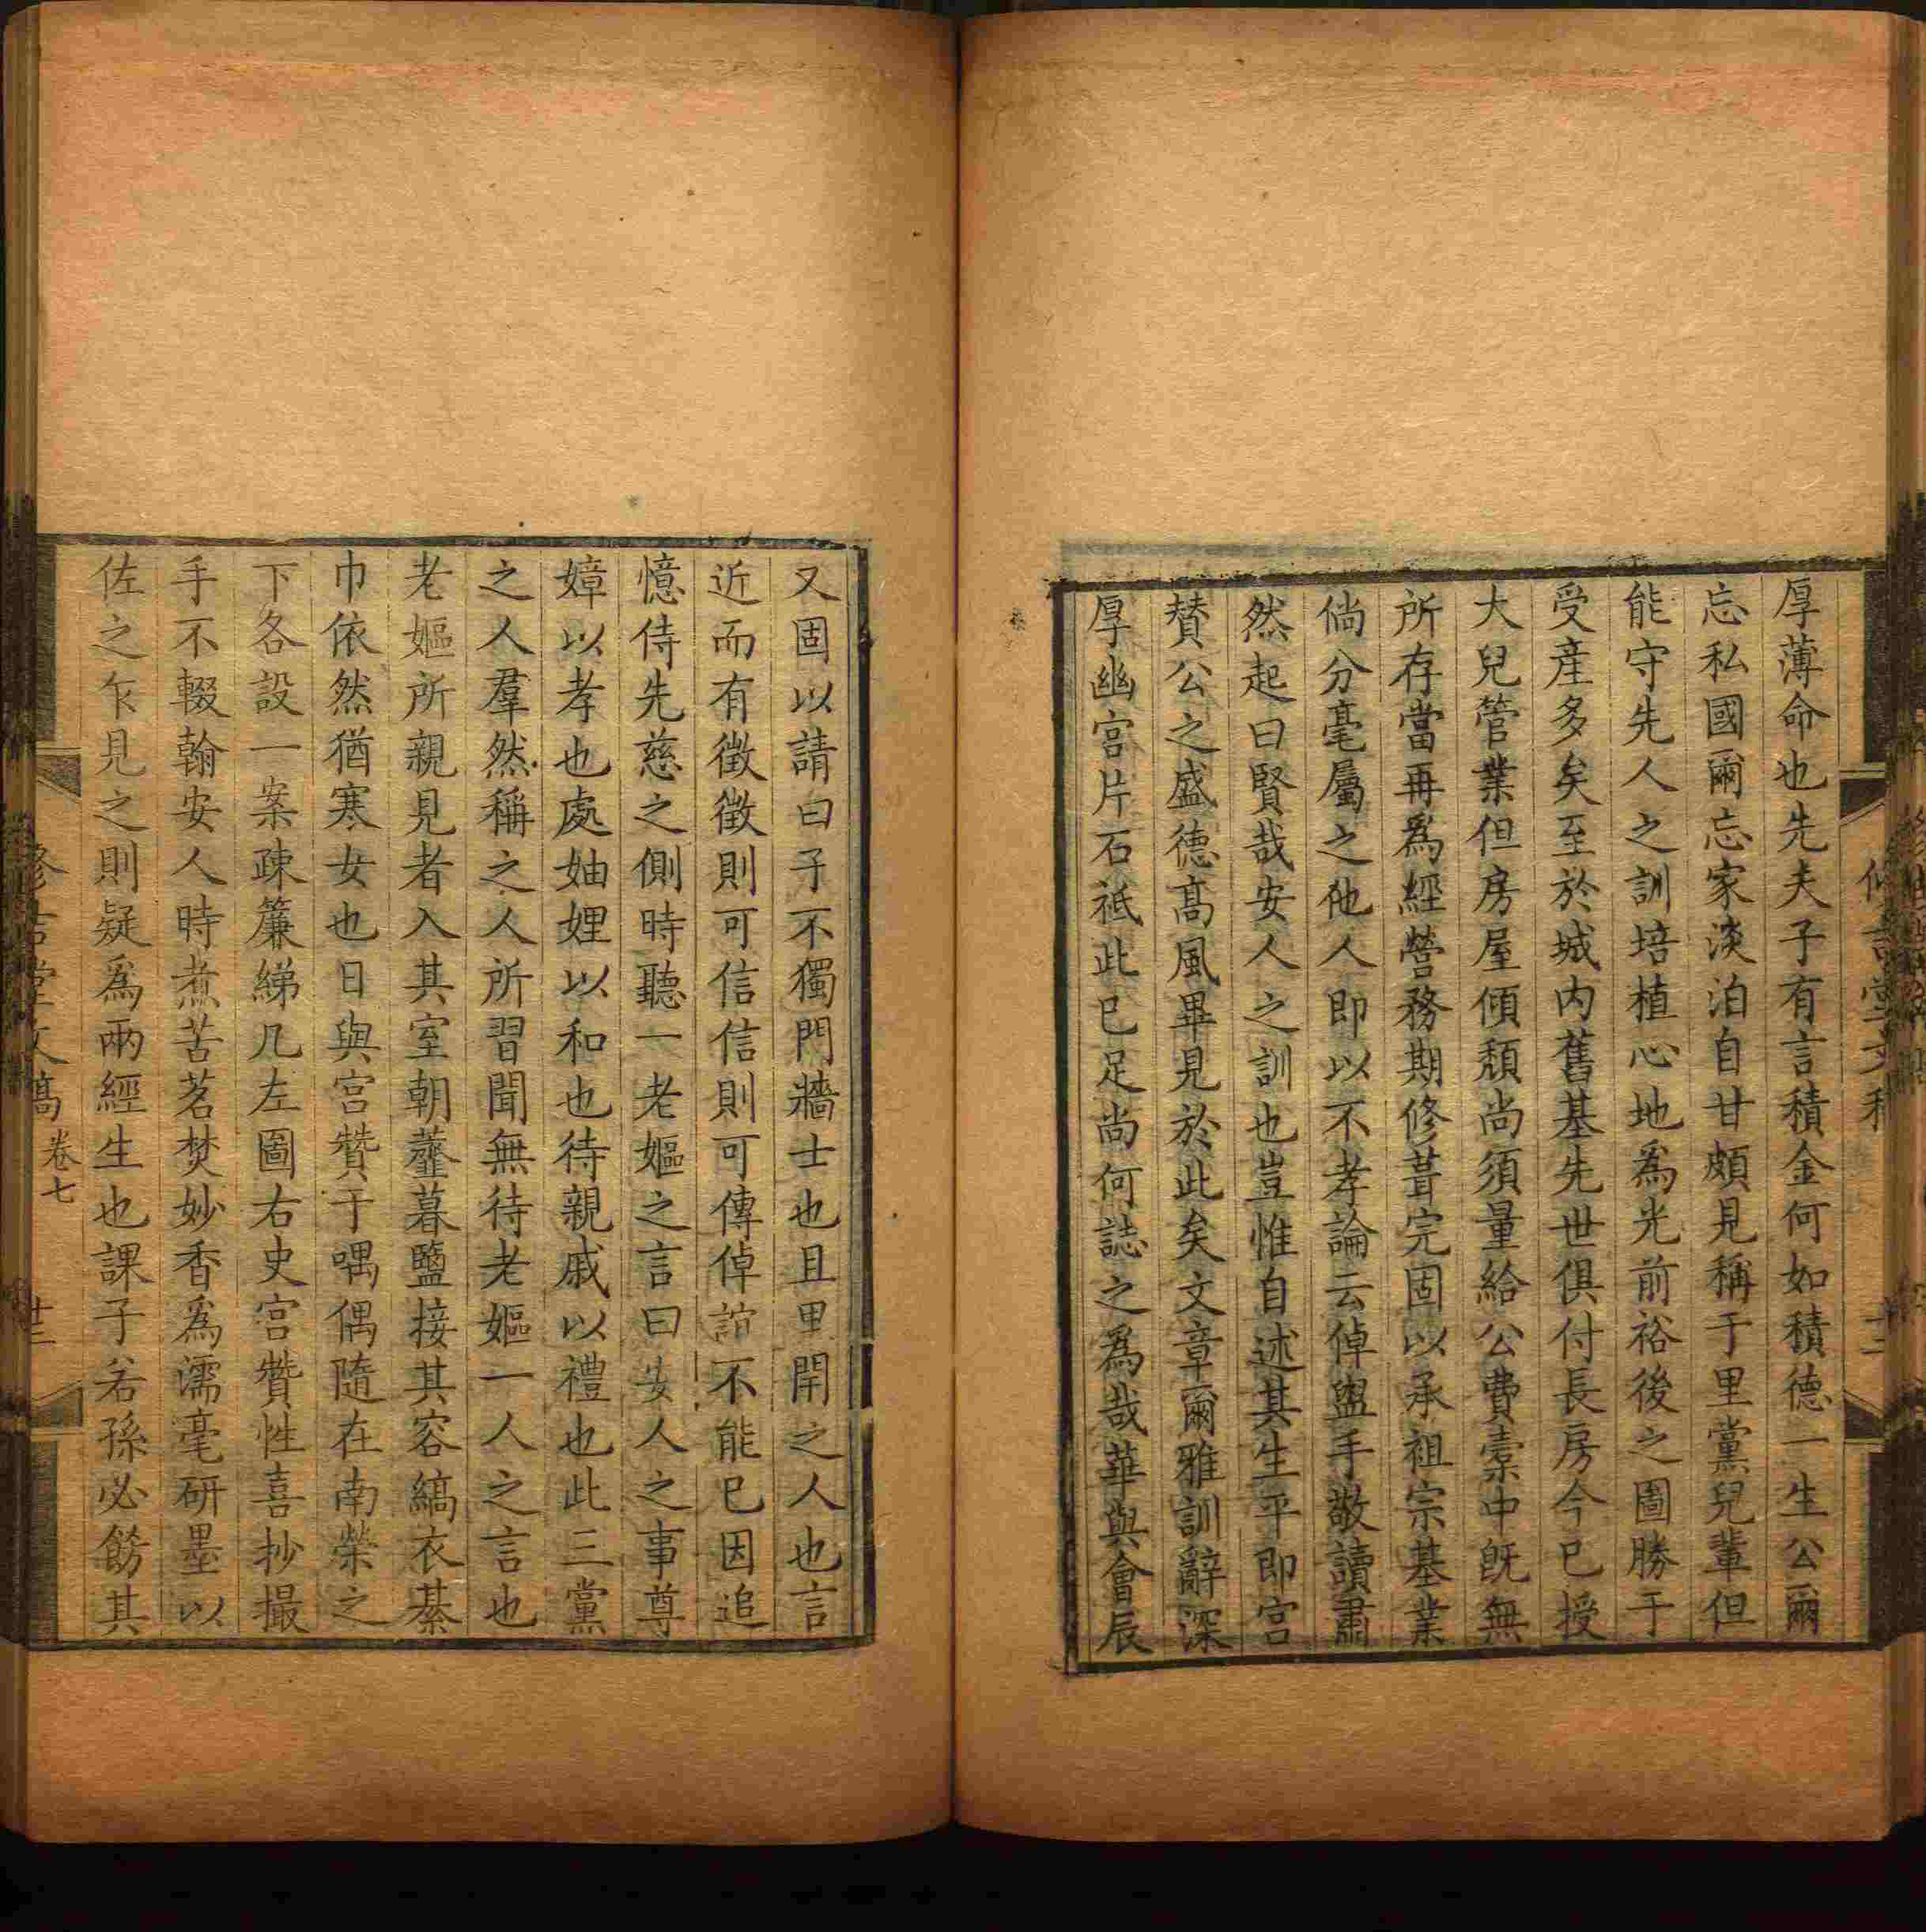 厚薄命也先夫子有言積金何如積德一生公爾
忘私國爾忘家淡泊自甘頗見稱于里黨兒輩但
能守先人之訓培植心地為光前裕後之圖勝于
受產多矣至於城內舊基先世俱付長房今已授
大兒管業但房屋傾頹尚須量給公費橐中旣無
所存當再為經營務期修葺完固以承祖宗基業
倘分毫屬之他人即以不孝論云倬盥手敬讀肅
然起曰賢哉安人之訓也豈惟自述其生平即宮
賛公之盛德高風畢見於此矣文章爾雅訓辭深
厚幽宮片石祗此已足尚何誌之為哉華與會辰
又固以請曰子不獨門牆士也且里閈之人也言
近而有徵徵則可信信則可傳倬誼不能已因追
憶侍先慈之側時聽一老嫗之言曰安人之事尊
嫜以孝也處妯娌以和也待親戚以禮也此三黨
之人羣然稱之人所習聞無待老嫗一人之言也
老嫗所親見者入其室朝虀暮鹽接其容縞衣綦
巾依然猶寒女也日與宮贊于喁偶隨在南榮之
下各設一案疎簾綈几左圖右史宮贊性喜抄撮
手不輟翰安人時煮苦茗焚妙香為濡毫研墨以
佐之乍見之則疑為兩經生也課子若孫必飭其
修吉堂文稿 卷七